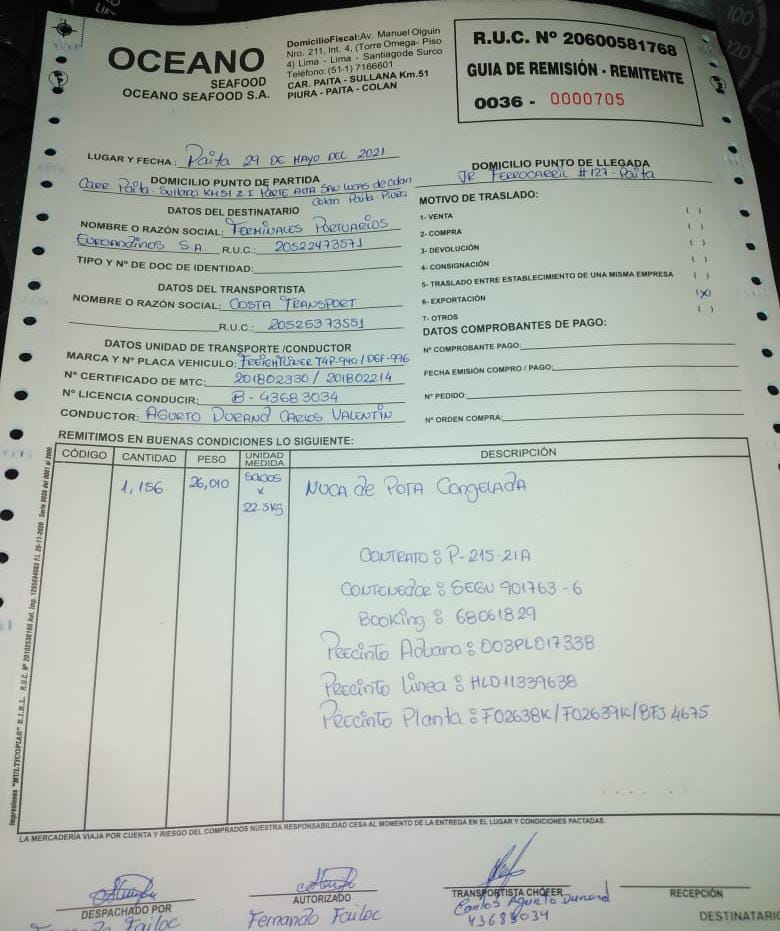 OCEANO
SEAFOOD
OCEANO SEAFOOD S.A.
Domicilio Fiscal: Av. Manuel Olguin
Nro. 211, Int. 4, (Torre Omega- Piso
4) Lima - Lima - Santiagode Surco
Teléfono: (51-1) 7166601
CAR. PAITA - SULLANA Km.51
PIURA - PAITA - COLAN
R.U.C. Nº 20600581768
GUIA DE REMISIÓN - REMITENTE
0036 - 0000705
LUGAR Y FECHA: Paita 29 DE MAYO DEL 2021
DOMICILIO PUNTO DE PARTIDA
Carr Paita- Sullana KM51 Z I PARTE ALTA SAN LUCAS de colan
Colan Paita Piura
DOMICILIO PUNTO DE LLEGADA
JR FERROCARRIL #127- Paita
DATOS DEL DESTINATARIO
NOMBRE O RAZÓN SOCIAL: TERMINALES PORTUARIOS
EUROANDINOS S.A. R.U.C.: 20522473571
TIPO Y Nº DE DOC DE IDENTIDAD:
DATOS DEL TRANSPORTISTA
NOMBRE O RAZÓN SOCIAL: COSTA TRANSPORT
R.U.C.: 20525373551
DATOS UNIDAD DE TRANSPORTE /CONDUCTOR
MARCA Y Nº PLACA VEHICULO: FREIGHTLINER T4P-940/ DGF-996
Nº CERTIFICADO DE MTC: 201802330 / 201802214
Nº LICENCIA CONDUCIR: B - 43683034
CONDUCTOR: AGURTO DURAND CARLOS VALENTIN
MOTIVO DE TRASLADO:
1- VENTA ( )
2- COMPRA ( )
3- DEVOLUCIÓN ( )
4- CONSIGNACIÓN ( )
5- TRASLADO ENTRE ESTABLECIMIENTO DE UNA MISMA EMPRESA ( )
6- EXPORTACIÓN (X)
7- OTROS ( )
DATOS COMPROBANTES DE PAGO:
Nº COMPROBANTE PAGO:
FECHA EMISIÓN COMPRO / PAGO:
Nº PEDIDO:
Nº ORDEN COMPRA:
REMITIMOS EN BUENAS CONDICIONES LO SIGUIENTE:
CÓDIGO CANTIDAD PESO UNIDAD MEDIDA DESCRIPCIÓN
1,156 26,010 SACOS X 22.5Kg NUCA de POTA CONGELADA
CONTRATO : P-215-21A
CONTENEDOR : SEGU 901763-6
Booking : 68061829
Precinto Aduana : 003PL017338
Precinto Linea : HLD11339638
Precinto Planta : F02638K/F02639K/BFJ 4675
LA MERCADERÍA VIAJA POR CUENTA Y RIESGO DEL COMPRADOS NUESTRA RESPONSABILIDAD CESA AL MOMENTO DE LA ENTREGA EN EL LUGAR Y CONDICIONES PACTADAS.
DESPACHADO POR
Fernando Failoc
AUTORIZADO
Fernando Failoc
TRANSPORTISTA CHOFER
Carlos Agurto Durand
43683034
RECEPCIÓN
DESTINATARIO